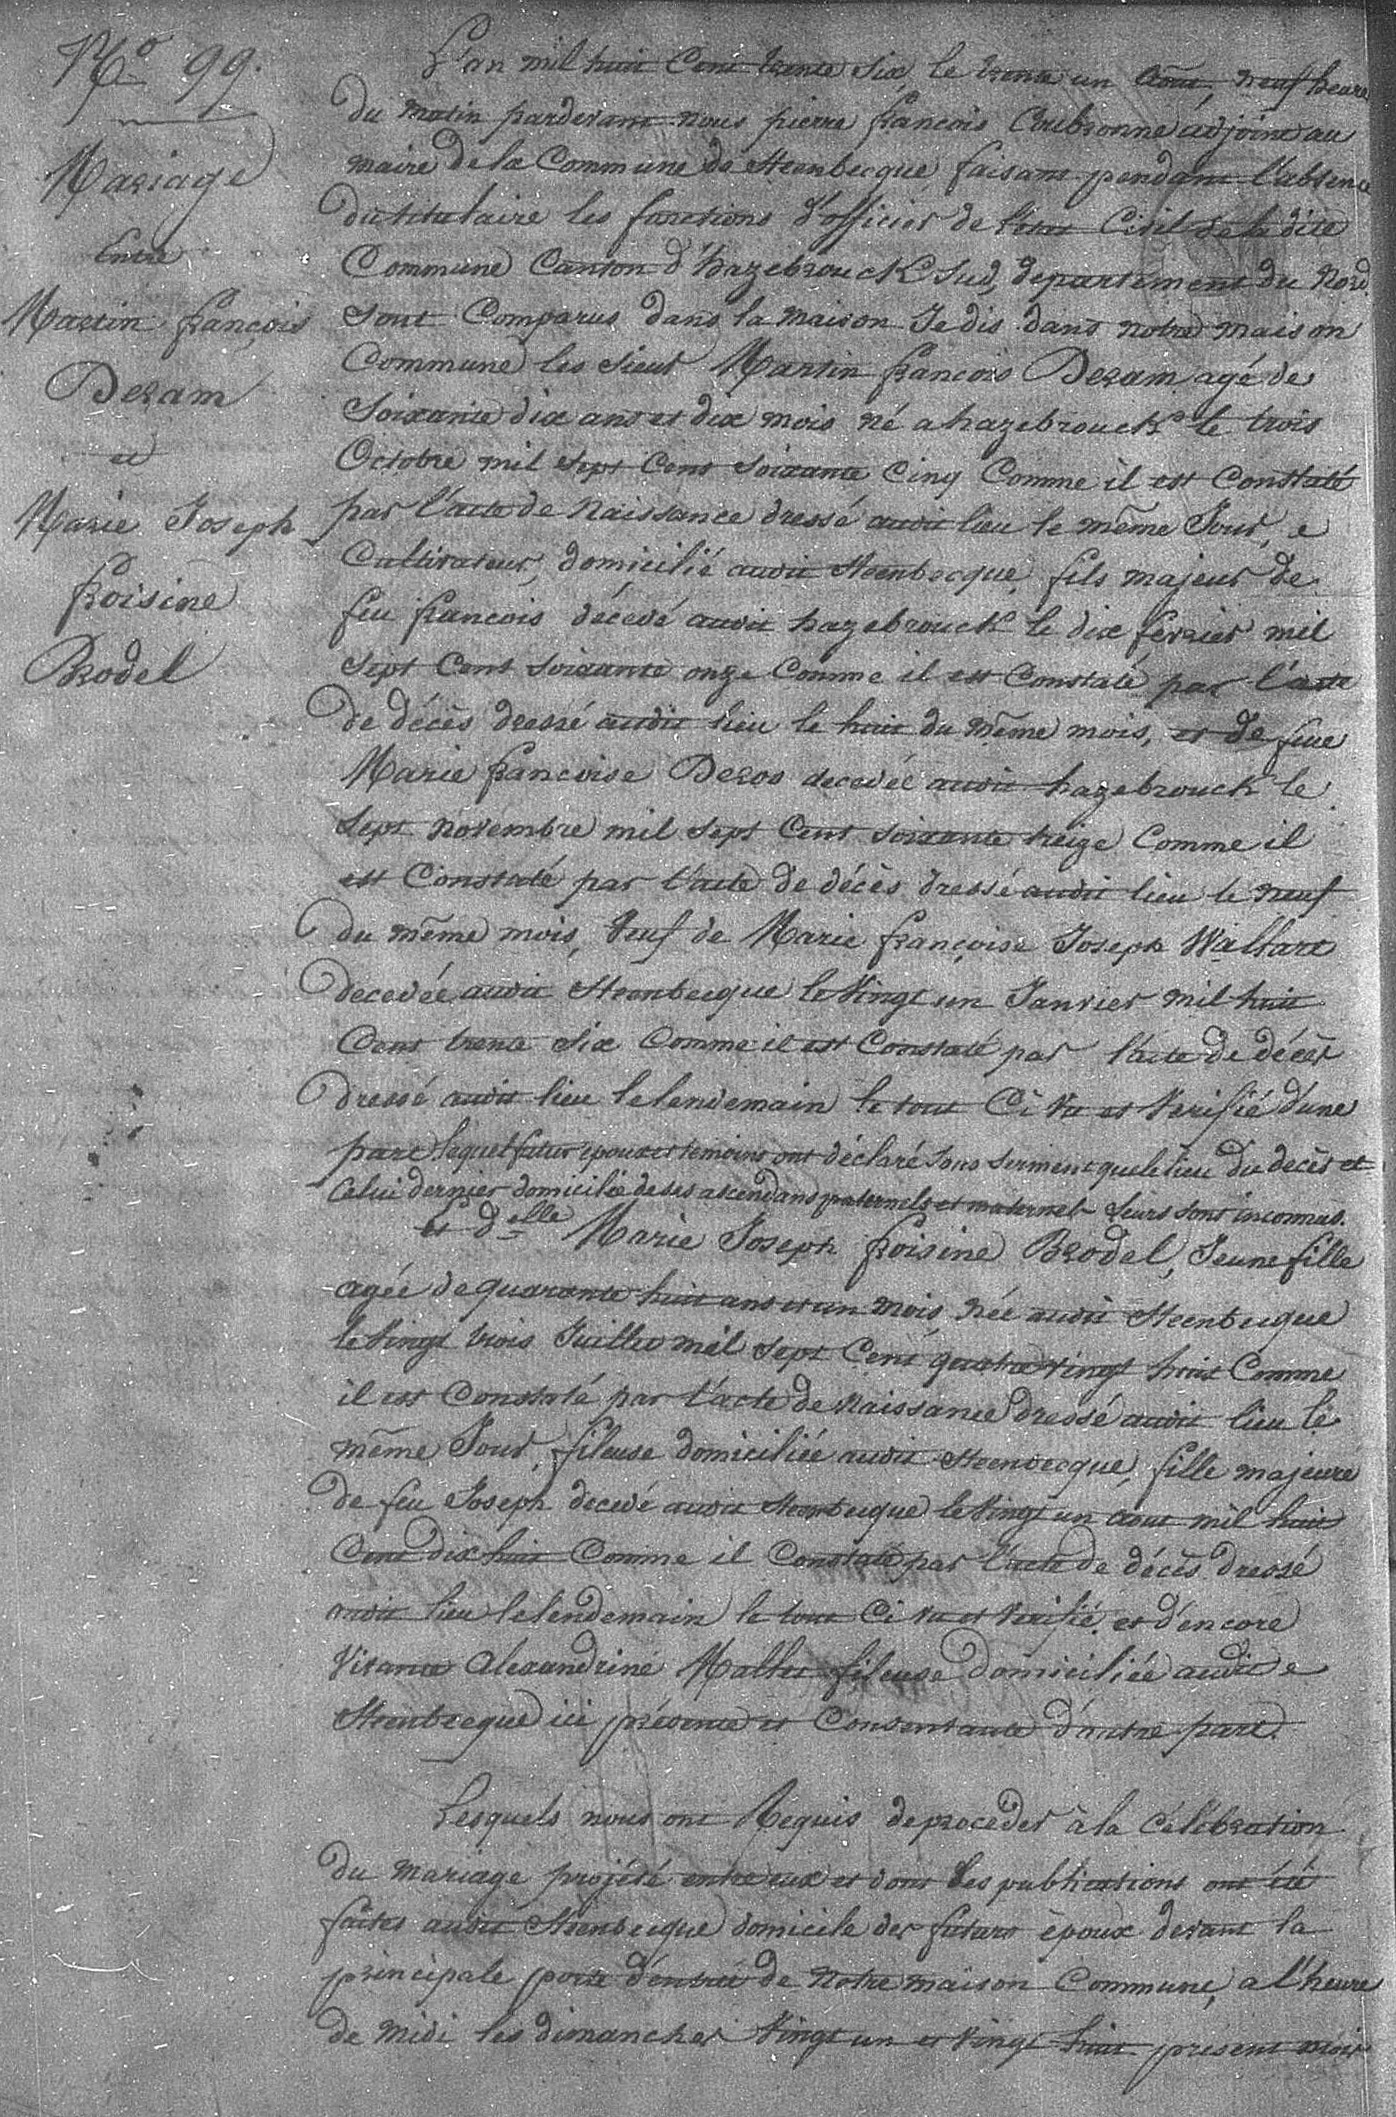 No 99.
Mariage
Entre
Martin françois
Deram
et
Marie Joseph
froisine
Brodel
L'an mil huit Cent trente six, le trente un Août, neuf heure
du matin pardevant nous pierre françois Coubronne adjoint au
maire de la Commune de Steenbecque, faisant pendant l'absence
du titulaire les fonctions d'officier de l'état Civil de la dite
Commune Canton d'hazebrouck Sud, departement du Nord.
Sont Comparus dans la maison Je dis dans notre maison
Commune les sieur Martin françois Deram agé de
Soixante dix ans et dix mois né a hazebrouck le trois
Octobre mil sept Cent soixante Cinq Comme il est Constaté
par l'acte de Naissance dressé audit lieu le même Jour,
Cultivateur, domicilié audit Steenbecque, fils majeur de
feu françois décedé audit hazebrouck le dix fevrier mil
sept Cent soixante onze Comme il est Constaté par l'acte
de décès dressé audit lieu le huit du même mois, et de feue
Marie françoise Deros decedée audit hazebrouck le
sept novembre mil sept Cent soixante treize Comme il
est Constaté par l'acte de décès dressé audit lieu le neuf
du même mois, Veuf de Marie françoise Joseph Wallart
decedée audit Steenbecque le Vingt un Janvier mil huit
Cent trente six Comme il est Constaté par l'acte de décès
dressé audit lieu le lendemain le tout Ci Vu et Verifié d'une
part lequel futur epoux et temoins ont déclaré sous serment que le lieu du decès et
Celui dernier domicilié de ses ascendans paternels et maternel leurs sont inconnus.
et d.elle Marie Joseph froisine Brodel, Jeune fille
agée de quarante huit ans et un mois née audit Steenbecque
le Vingt trois Juillet mil sept Cent quatre vingt huit Comme
il est Constaté par l'acte de Naissance dressé audit lieu le
même Jour, fileuse domiciliée audit Steenbecque, fille majeure
de feu Joseph decedé audit Steenbecque le Vingt un aout mil huit
Cent dix huit Comme il Constaté par l'acte de décès dressé
audit lieu le lendemain le tout Ci Vu et Verifié. et d'encore
Vivante Alexandrine Mallet fileuse domiciliée audit
Steenbecque ici présente et Consentante d'autre part.
Lesquels nous ont Requis de proceder à la Célébration
du mariage projété entre eux et dont les publications ont été
faites audit Steenbecque domicile des futurs époux devant la
principale porte d'entrée de Notre maison Commune, a l'heure
de midi les dimanches Vingt un et Vingt huit présent mois